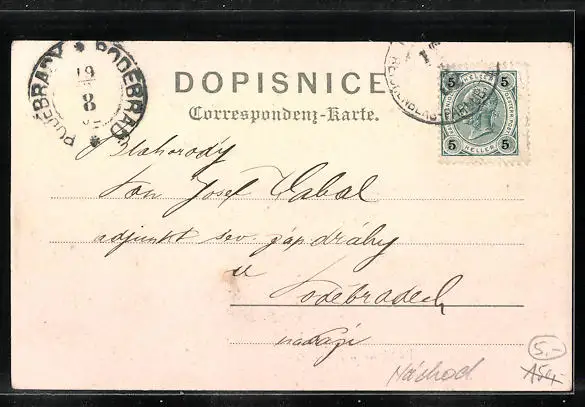 PODĚBRADY * PODĚBRADY *
19
8
DOPISNICE
Correspondenz-Karte.
5 HELLER 5
5 HELLER 5
Blahorodý
Pan Josef Cabal
adjunkt sev. záp dráhy
v
Poděbradech
nádraží
Náchod
5.-